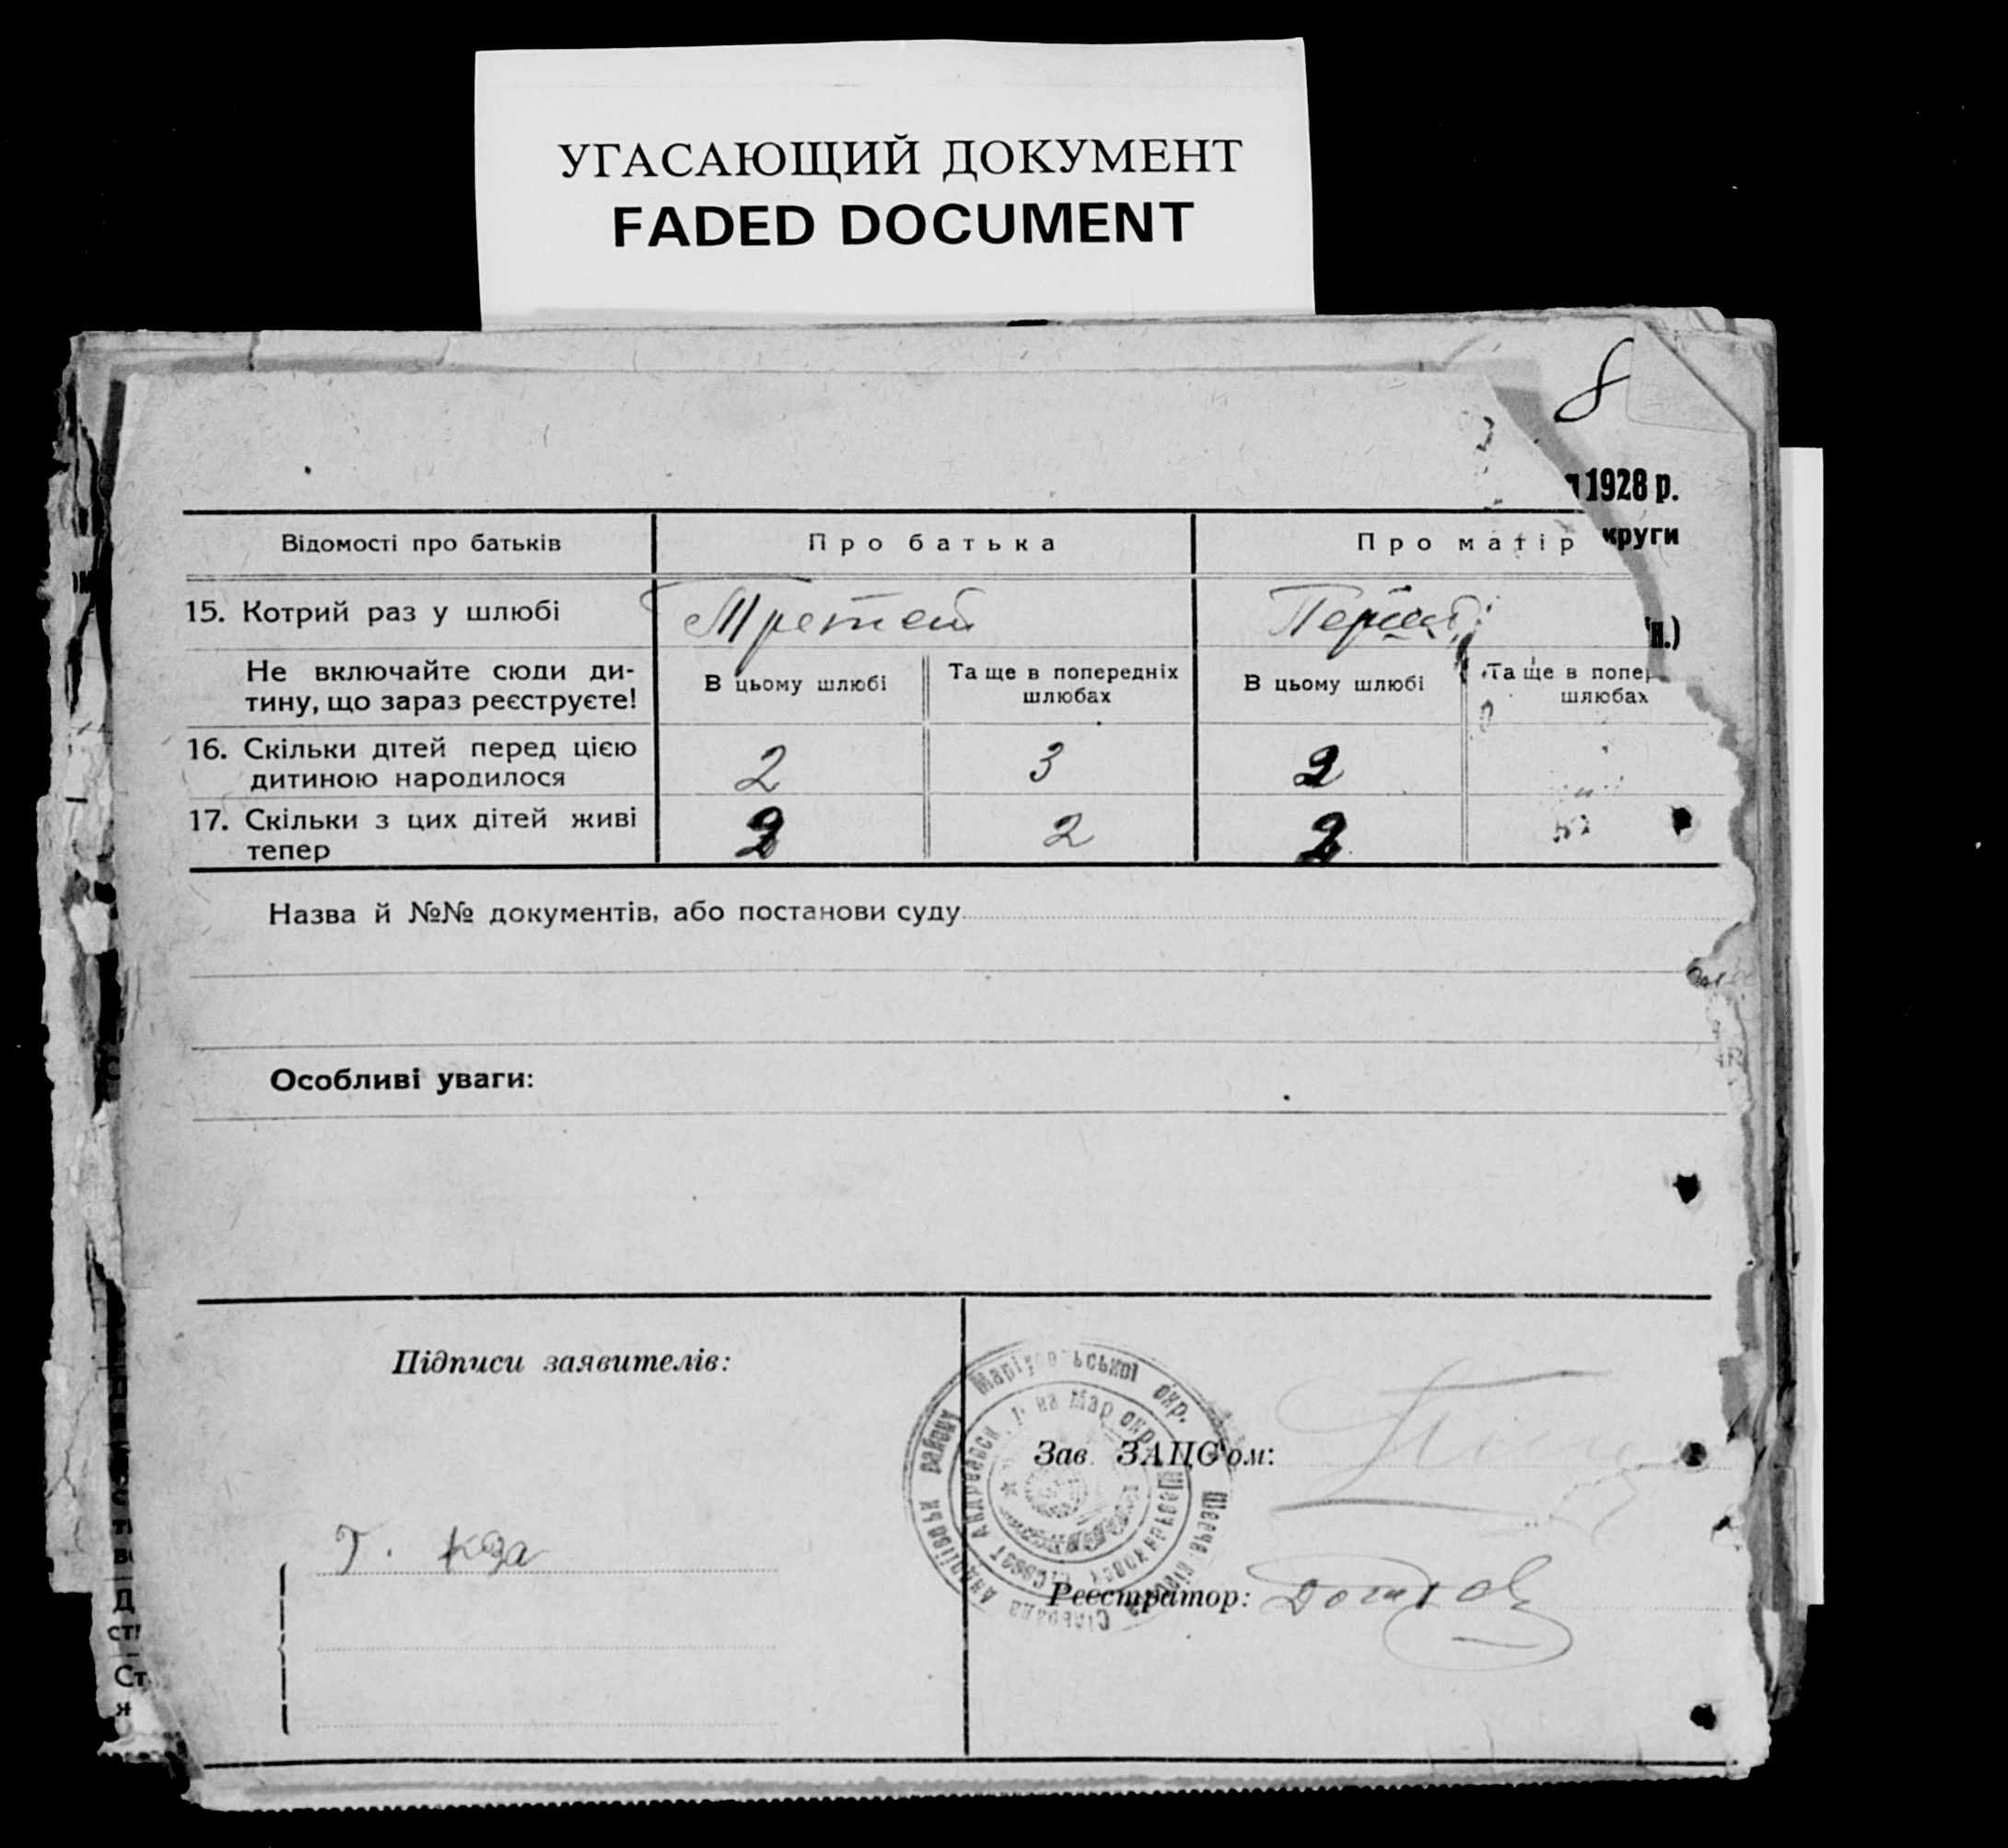 УГАСАЮЩИЙ ДОКУМЕНТ
FADED DOCUMENT
8
1928 р.
круги
Відомості про батьків
Про батька
Про матір
15. Котрий раз у шлюбі
Третей
Первый
Не включайте сюди ди-
тину, що зараз реєструєте!
В цьому шлюбі
Та ще в попередніх
шлюбах
В цьому шлюбі
Та ще в попер
шлюбах
16. Скільки дітей перед цією
дитиною народилося
2
3
2
17. Скільки з цих дітей живі
тепер
2
2
2
Назва й №№ документів, або постанови суду
Особливі уваги:
Підписи заявителів:
Маріупольської окр.
Зав. ЗАЦС'ом:
Реєстратор: